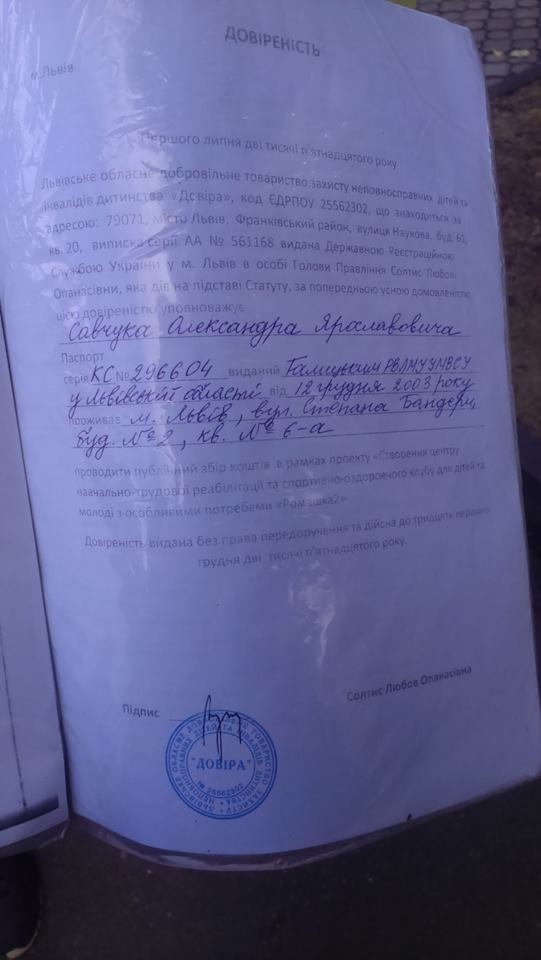 ДОВІРЕНІСТЬ
м.Львів
Першого липня дві тисячі п'ятнадцятого року
Львівське обласне добровільне товариство захисту неповносправних дітей та
інвалідів дитинства «Довіра», код ЄДРПОУ 25562302, що знаходиться за
адресою: 79071, місто Львів, Франківський район, вулиця Наукова, буд. 61,
кв. 20, виписка серії АА № 561168 видана Державною Реєстраційною
Службою України у м. Львів в особі Голови Правління Солтис Любові
Опанасівни, яка діє на підставі Статуту, за попередньою усною домовленістю,
цією довіреністю уповноважує
Савчука Олександра Ярославовича
Паспорт
серія КС № 296604 виданий Галицьким РВЛМУУМВСУ
у Львівській області від 12 грудня 2003 року
проживає м. Львів, вул. Степана Бандери,
буд. № 2, кв. № 6-а
проводити публічний збір коштів в рамках проекту «Створення центру
навчально-трудової реабілітації та спортивно-оздоровчого клубу для дітей та
молоді з особливими потребами «Ромашка2»
Довіреність видана без права передоручення та дійсна до тридцять першого
грудня дві тисячі п'ятнадцятого року.
Солтис Любов Опанасівна
Підпис
ЛЬВІВСЬКЕ ОБЛАСНЕ ДОБРОВІЛЬНЕ ТОВАРИСТВО ЗАХИСТУ
НЕПОВНОСПРАВНИХ ДІТЕЙ ТА ІНВАЛІДІВ ДИТИНСТВА
"ДОВІРА"
№ 25562302